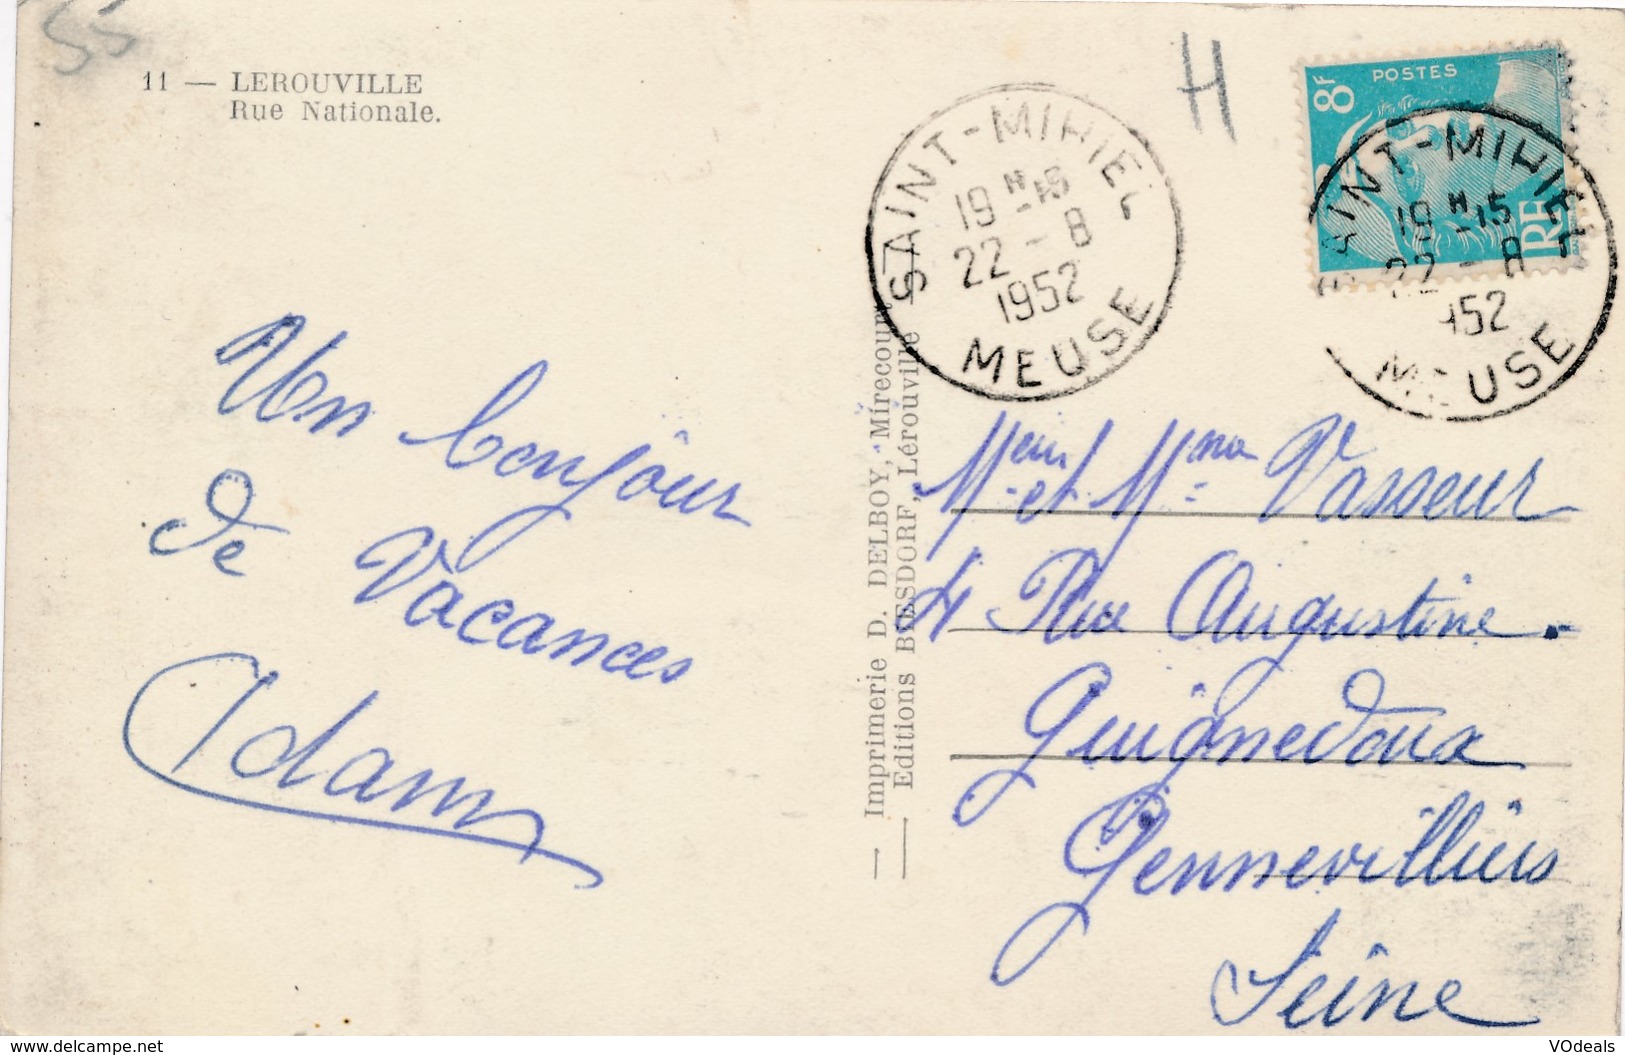 55
11 — LEROUVILLE
Rue Nationale.
H
8F
POSTES
RF
SAINT-MIHIEL
19 H -15
22 - 8
1952
MEUSE
SAINT-MIHIEL
19 H -15
22 - 8
1952
MEUSE
Un bonjour
de Vacances
Adam
— Imprimerie D. DELBOY, Mirecourt
— Editions BIESDORF, Lérouville
et Mme Vasseur
4 Rue Augustine.
Guignedoux
Gennevilliers
Seine
www.delcampe.net
VOdeals